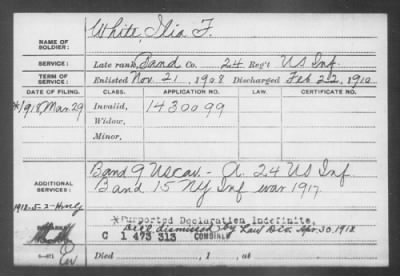 NAME OF SOLDIER: White, Ilia F.
SERVICE: Late rank, Band Co. 24 Reg't US Inf.
TERM OF SERVICE: Enlisted Nov. 21, 1908 Discharged Feb 22, 1910
DATE OF FILING. CLASS. APPLICATION NO. LAW. CERTIFICATE NO.
*1918 Mar. 29 Invalid, 1430099
Widow,
Minor,
ADDITIONAL SERVICES: Band 9 US Cav. - A. 24 US Inf.
Band 15 NY Inf war 1917.
1918-5-2-
*Purported Declaration Indefinite.
dismissed by Law Dec. Apr. 30, 1918
C 1 473 313 COMBINED
6-471 Died , 1 , at